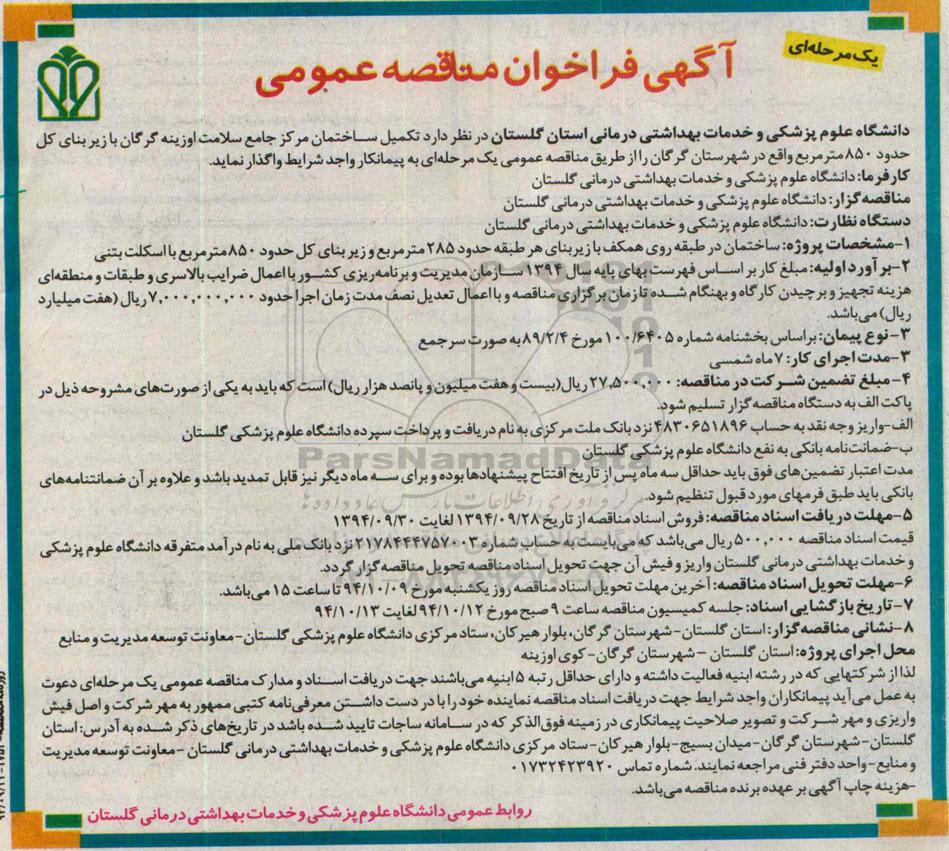 یک مرحله‌ای
آگهی فراخوان مناقصه عمومی
دانشگاه علوم پزشکی و خدمات بهداشتی درمانی استان گلستان در نظر دارد تکمیل ساختمان مرکز جامع سلامت اوزینه گرگان با زیر بنای کل
حدود ۸۵۰ مترمربع واقع در شهرستان گرگان را از طریق مناقصه عمومی یک مرحله‌ای به پیمانکار واجد شرایط واگذار نماید.
کارفرما: دانشگاه علوم پزشکی و خدمات بهداشتی درمانی گلستان
مناقصه‌گزار: دانشگاه علوم پزشکی و خدمات بهداشتی درمانی گلستان
دستگاه نظارت: دانشگاه علوم پزشکی و خدمات بهداشتی درمانی گلستان
۱-مشخصات پروژه: ساختمان در طبقه روی همکف با زیربنای هر طبقه حدود ۲۸۵ مترمربع و زیر بنای کل حدود ۸۵۰ مترمربع با اسکلت بتنی
۲-برآورد اولیه: مبلغ کار بر اساس فهرست بهای پایه سال ۱۳۹۴ سازمان مدیریت و برنامه‌ریزی کشور با اعمال ضرایب بالاسری و طبقات و منطقه‌ای
هزینه تجهیز و برچیدن کارگاه و بهنگام شده تا زمان برگزاری مناقصه و با اعمال تعدیل نصف مدت زمان اجرا حدود ۷,۰۰۰,۰۰۰,۰۰۰ ریال (هفت میلیارد
ریال) می‌باشد.
۳-نوع پیمان: براساس بخشنامه شماره ۱۰۰/۶۴۰۵ مورخ ۸۹/۲/۴ به صورت سرجمع
۳-مدت اجرای کار: ۷ ماه شمسی
۴-مبلغ تضمین شرکت در مناقصه: ۲۷,۵۰۰,۰۰۰ ریال (بیست و هفت میلیون و پانصد هزار ریال) است که باید به یکی از صورت‌های مشروحه ذیل در
پاکت الف به دستگاه مناقصه‌گزار تسلیم شود.
الف-واریز وجه نقد به حساب ۴۸۳۰۶۵۱۸۹۶ نزد بانک ملت مرکزی به نام دریافت و پرداخت سپرده دانشگاه علوم پزشکی گلستان
ب-ضمانت‌نامه بانکی به نفع دانشگاه علوم پزشکی گلستان
مدت اعتبار تضمین‌های فوق باید حداقل سه ماه پس از تاریخ افتتاح پیشنهادها بوده و برای سه ماه دیگر نیز قابل تمدید باشد و علاوه بر آن ضمانتنامه‌های
بانکی باید طبق فرمهای مورد قبول تنظیم شود.
۵-مهلت دریافت اسناد مناقصه: فروش اسناد مناقصه از تاریخ ۱۳۹۴/۰۹/۲۸ لغایت ۱۳۹۴/۰۹/۳۰
قیمت اسناد مناقصه ۵۰۰,۰۰۰ ریال می‌باشد که می‌بایست به حساب شماره ۲۱۷۸۴۴۴۷۵۷۰۰۳ نزد بانک ملی به نام درآمد متفرقه دانشگاه علوم پزشکی
و خدمات بهداشتی درمانی گلستان واریز و فیش آن جهت تحویل اسناد مناقصه تحویل مناقصه گزار گردد.
۶-مهلت تحویل اسناد مناقصه: آخرین مهلت تحویل اسناد مناقصه روز یکشنبه مورخ ۹۴/۱۰/۰۹ تا ساعت ۱۵ می‌باشد.
۷-تاریخ بازگشایی اسناد: جلسه کمیسیون مناقصه ساعت ۹ صبح مورخ ۹۴/۱۰/۱۲ لغایت ۹۴/۱۰/۱۳
۸-نشانی مناقصه‌گزار: استان گلستان-شهرستان گرگان، بلوار هیرکان، ستاد مرکزی دانشگاه علوم پزشکی گلستان-معاونت توسعه مدیریت و منابع
محل اجرای پروژه: استان گلستان -شهرستان گرگان-کوی اوزینه
لذا از شرکتهایی که در رشته ابنیه فعالیت داشته و دارای حداقل رتبه ۵ ابنیه می‌باشند جهت دریافت اسناد و مدارک مناقصه عمومی یک مرحله‌ای دعوت
به عمل می‌آید پیمانکاران واجد شرایط جهت دریافت اسناد مناقصه نماینده خود را با در دست داشتن معرفی‌نامه کتبی ممهور به مهر شرکت و اصل فیش
واریزی و مهر شرکت و تصویر صلاحیت پیمانکاری در زمینه فوق‌الذکر که در سامانه ساجات تایید شده باشد در تاریخ‌های ذکر شده به آدرس: استان
گلستان-شهرستان گرگان-میدان بسیج-بلوار هیرکان-ستاد مرکزی دانشگاه علوم پزشکی و خدمات بهداشتی درمانی گلستان-معاونت توسعه مدیریت
و منابع-واحد دفتر فنی مراجعه نمایند. شماره تماس ۰۱۷۳۲۴۲۳۹۲۰
-هزینه چاپ آگهی بر عهده برنده مناقصه می‌باشد.
روابط عمومی دانشگاه علوم پزشکی و خدمات بهداشتی درمانی گلستان
ParsNamadData